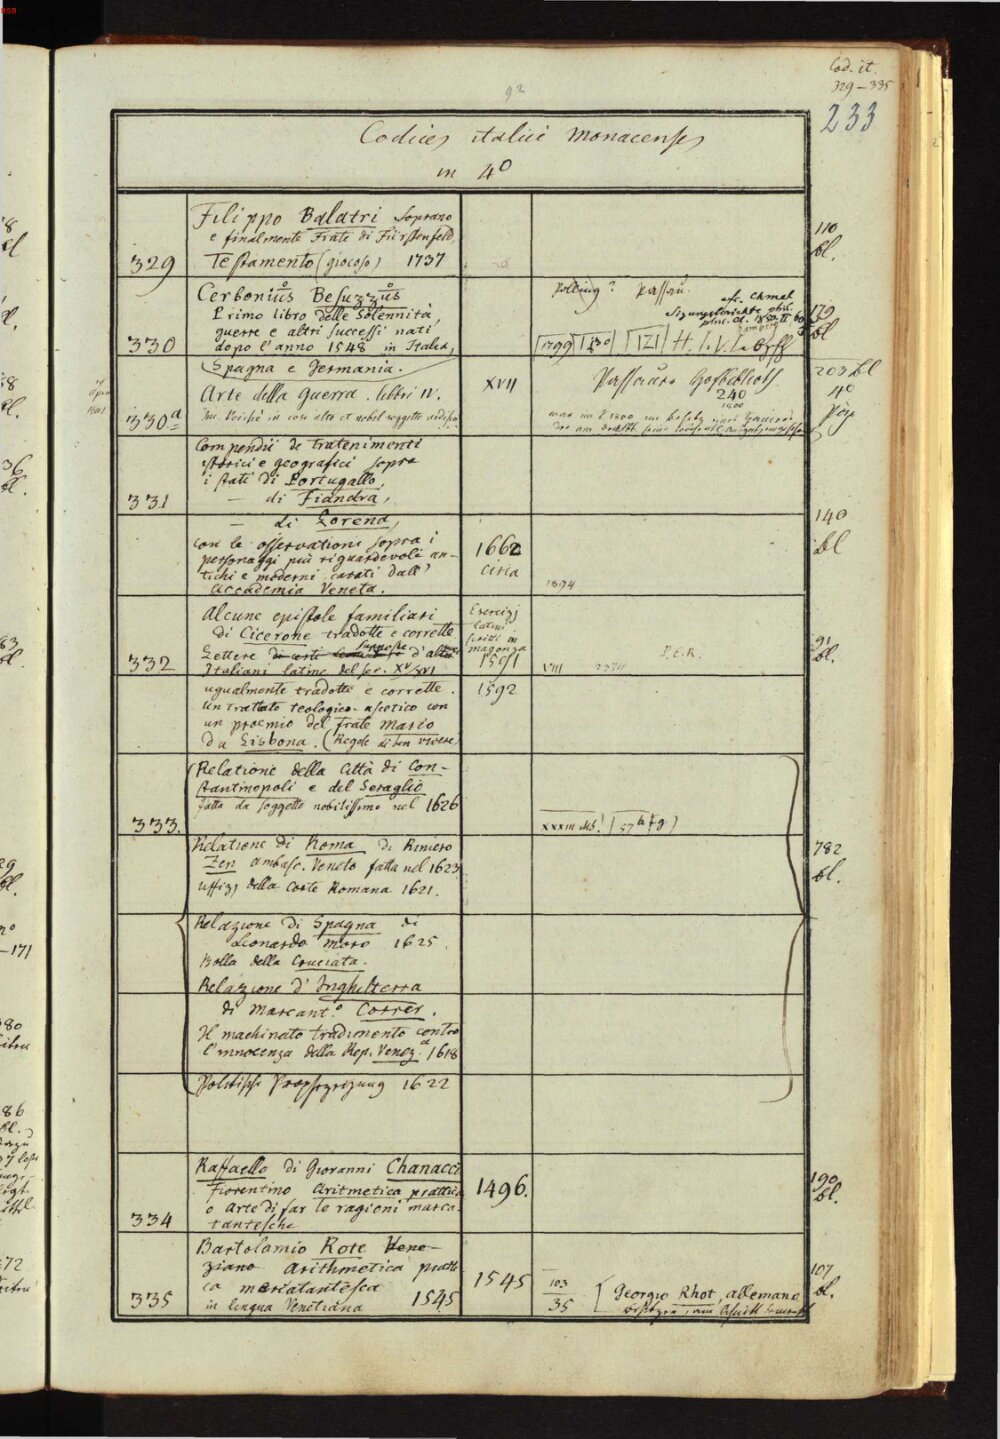 Cod. it.
329-335
233
92
Codices italici Monacenses
in 4o
Filippo Balatri Soprano
e finalmente Frate di Fürstenfeld
329 Testamento (giocoso) 1737
110
bl.
Cerbonius Besuzzus
Primo libro delle Solennità,
guerre e altri successi nati
330 dopo l'anno 1548 in Italia,
Spagna e Germania.
Polling? Passau.
cfr. Chmel
Sizungsberichte phil.
1799 130 171
179
bl
330a Arte della Guerra. libri IV.
XVII
Passauer Hofbiblioth.
240
1800
203 bl
4o
Compendii de tratenimenti
istorici e geografici sopra
i stati di Portugallo,
331 — di Fiandra,
— di Lorena,
con le osservationi sopra i
personaggi più riguardevoli an-
tichi e moderni curati dall'
Accademia Veneta.
1662
circa
1894
140
bl
Alcune epistole familiari
di Cicerone tradotte e corrette
332 Lettere d'altri
Italiani latine del sec. XV/XVI
ugualmente tradotte e corrette.
un trattato teologico-ascetico con
un proemio del frate Marco
da Lisbona. (Regole di ben vivere)
Esercizj
latini
scritti in
magonza
1551
1592
P.E.R.
91
bl.
Relatione della Città di Con-
stantinopoli e del Seraglio
fatta da soggetto nobilissimo nel 1626
333.
XXXIII
Relatione di Roma di Riniero
Zen ambasc. Veneto fatta nel 1623
uffizj della Corte Romana 1621.
782
bl.
Relazione di Spagna di
Leonardo Moro 1625.
Bolla della Cruciata.
Relazione d'Inghilterra
di Marcant.o Correr.
Il machinato tradimento contro
l'innocenza della Rep. Venez.a 1618
Politische Prophezeyung 1622
Raffaello di Giovanni Chanacci
Fiorentino Aritmetica prattica
o arte di far le ragioni merca-
334 tantesche
1496.
190
bl.
Bartolamio Rote Vene-
ziano arithmetica pratti
ca mercatantesca
335 in lingua Venetiana 1545
1545
103
35
Georgio Rhot, allemano
107
bl.